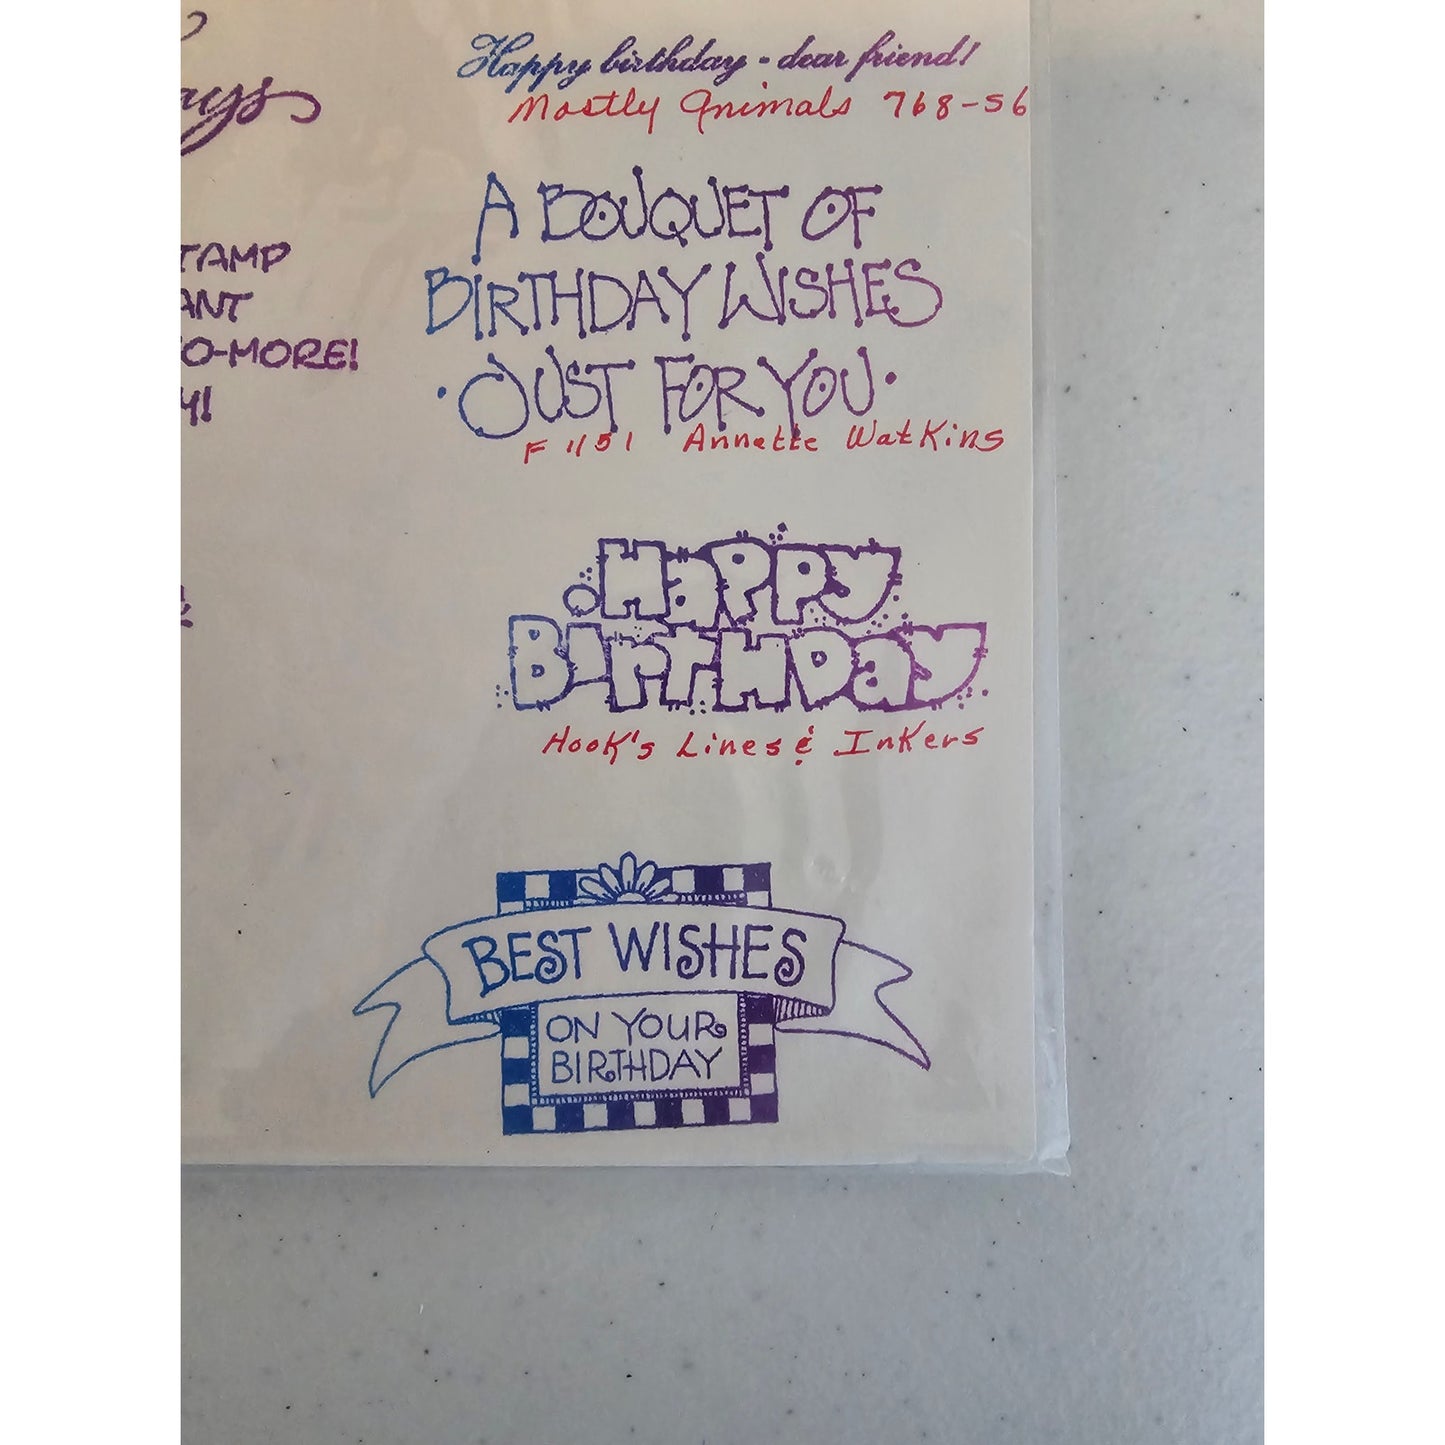 Happy birthday - dear friend!
Mostly Animals 768-56
A BOUQUET OF
BIRTHDAY WISHES
• JUST FOR YOU •
F 1151 Annette Watkins
Happy
Birthday
Hook's Lines & Inkers
BEST WISHES
ON YOUR
BIRTHDAY
ays
TAMP
ANT
O-MORE!
Y!